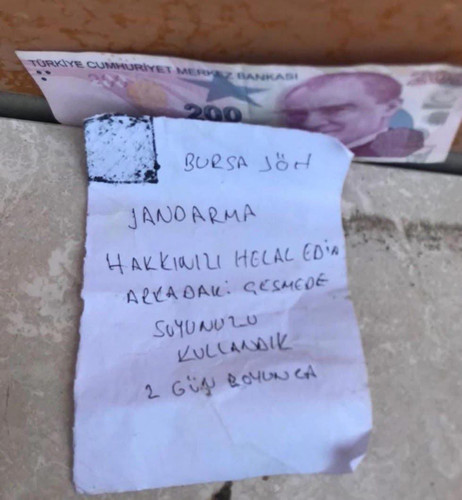 TÜRKİYE CUMHURİYET MERKEZ BANKASI
200
BURSA JÖH
JANDARMA
HAKKINIZI HELAL EDİN
ARKADAKİ ÇEŞMEDE
SUYUNUZU
KULLANDIK
2 GÜN BOYUNCA